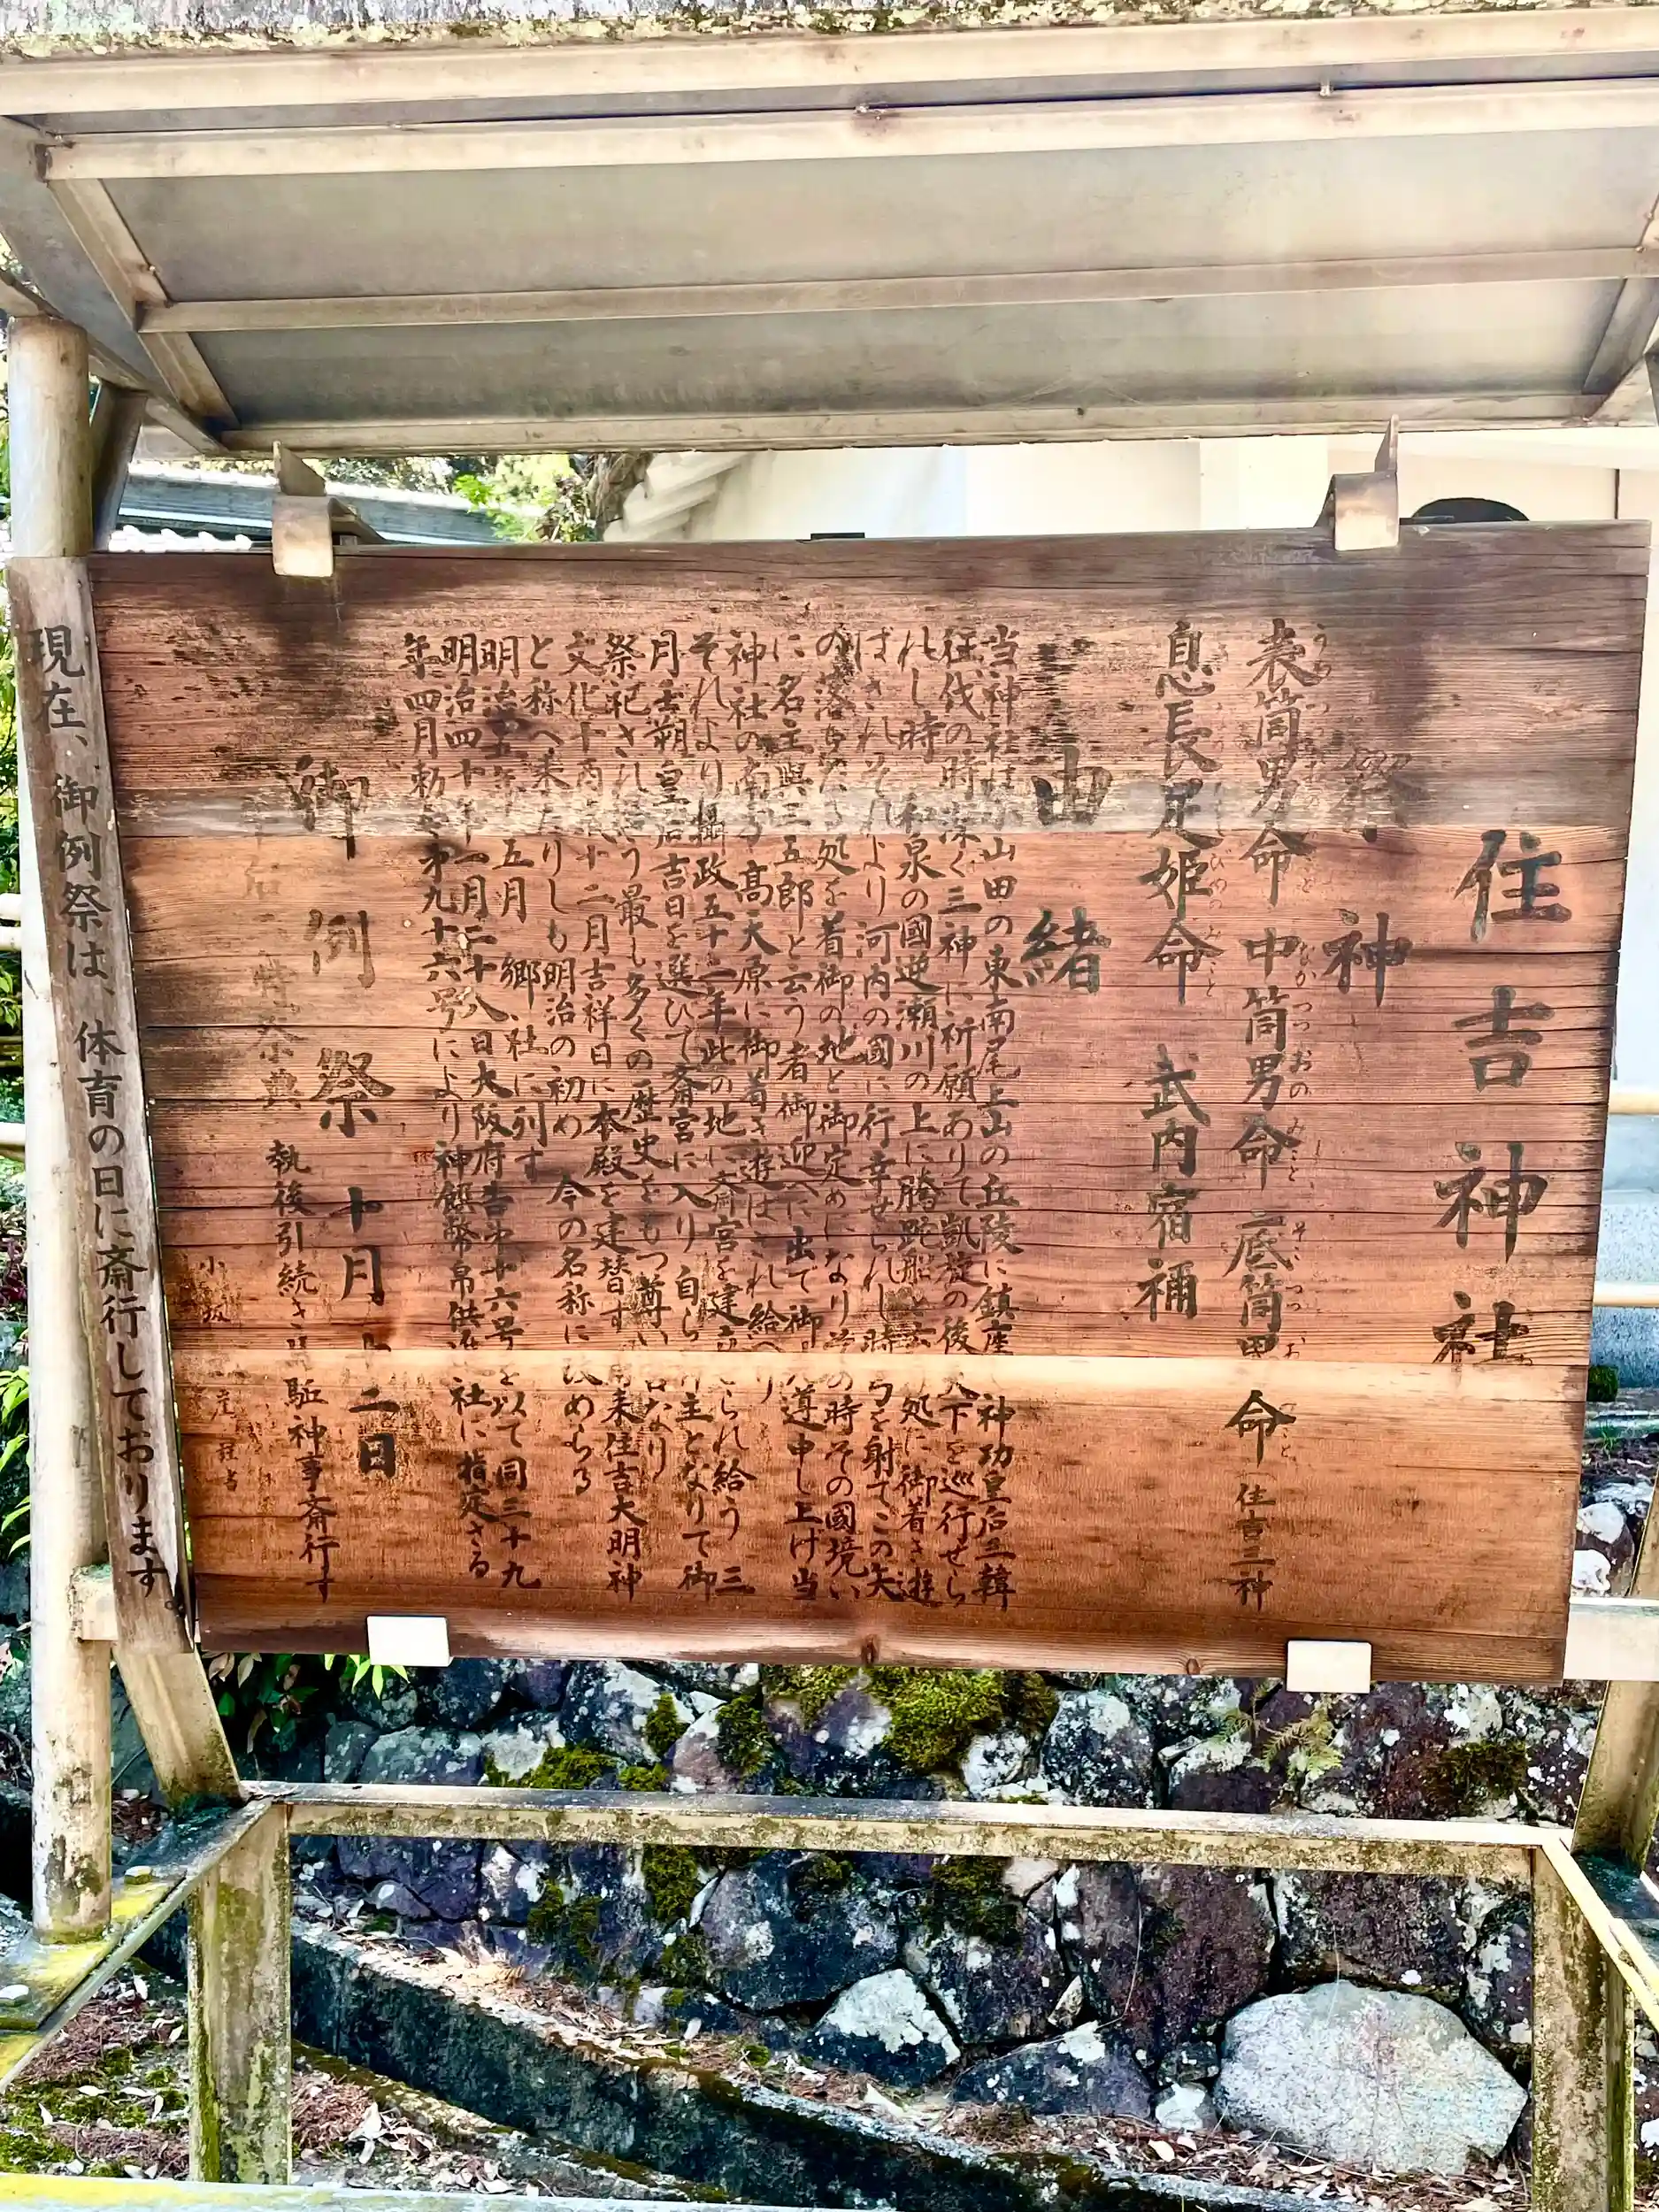 住吉神社
祭神
表筒男命 中筒男命 底筒男命 住吉三神
息長足姫命 武内宿禰
由緒
当神社は小山田の東南尾上山の丘陵に鎮座 神功皇后三韓
征伐の時深く三神に祈願ありて凱旋の後天下を巡行せら
れし時 和泉の國逆瀬川の上に腾 船と 処に御着き遊
ばされそれより河内の國に行幸せられし時 弓を射てこの矢
の落ちたる処を着御の地と御定めになりその時その國境い
に名主與三五郎と云う者御迎へに出で御 導申し上け当
神社の南方高天原に御着き遊はされ給へり
それより攝政五十二年此の地に斎宮を建 られ給う 三
月壬朔皇后吉日を選ひて斎宮に入り自ら 主となりて御
祭祀され給う最も多くの歴史をもつ尊い なり
文化十 十二月吉祥日に本殿を建替す 来住吉大明神
と称へ来たりしも明治の初め 今の名称に改めらる
明治五年 五月 郷社に列す
明治四十年一月二十八日大阪府告 十六号を以て同三十九
年四月勅 才九十六号により神饌幣帛供 社に指定さる
御例祭 十月 十二日
特祭典 執後引続き 神事斎行す
小坂
現在、御例祭は、体育の日に斎行しております。